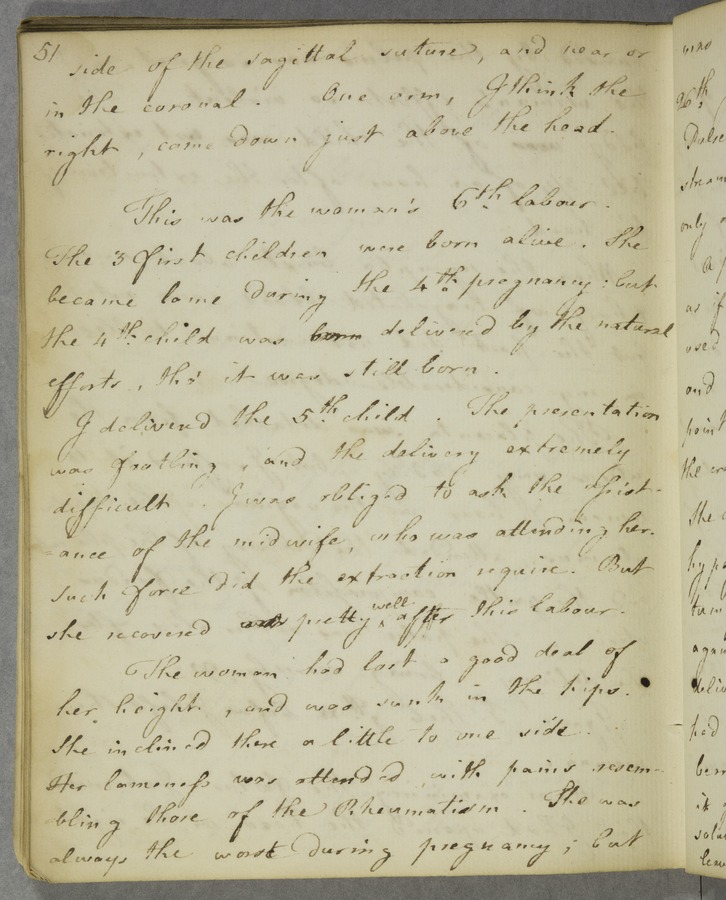 51
side of the sagittal suture, and near or
in the coronal. One arm, I think the
right, came down just above the head.
This was the woman's 6th labour.
The 3 first children were born alive. She
became lame during the 4th pregnancy: but
the 4th child was born delivered by the natural
efforts, tho' it was still born.
I delivered the 5th child. The presentation
was footling, and the delivery extremely
difficult. I was obliged to ask the assist-
=ance of the midwife, who was attending her.
such force did the extraction require. But
she recovered pretty well after this labour.
The woman had lost a good deal of
her height, and was sunk in the hips.
She inclined there a little to one side.
Her lameness was attended with pains resem-
bling those of the Rheumatism. She was
always the worst during pregnancy; but
was
26th
Pulse
stream
only
as if
used
and
point
the
She
again
had
it